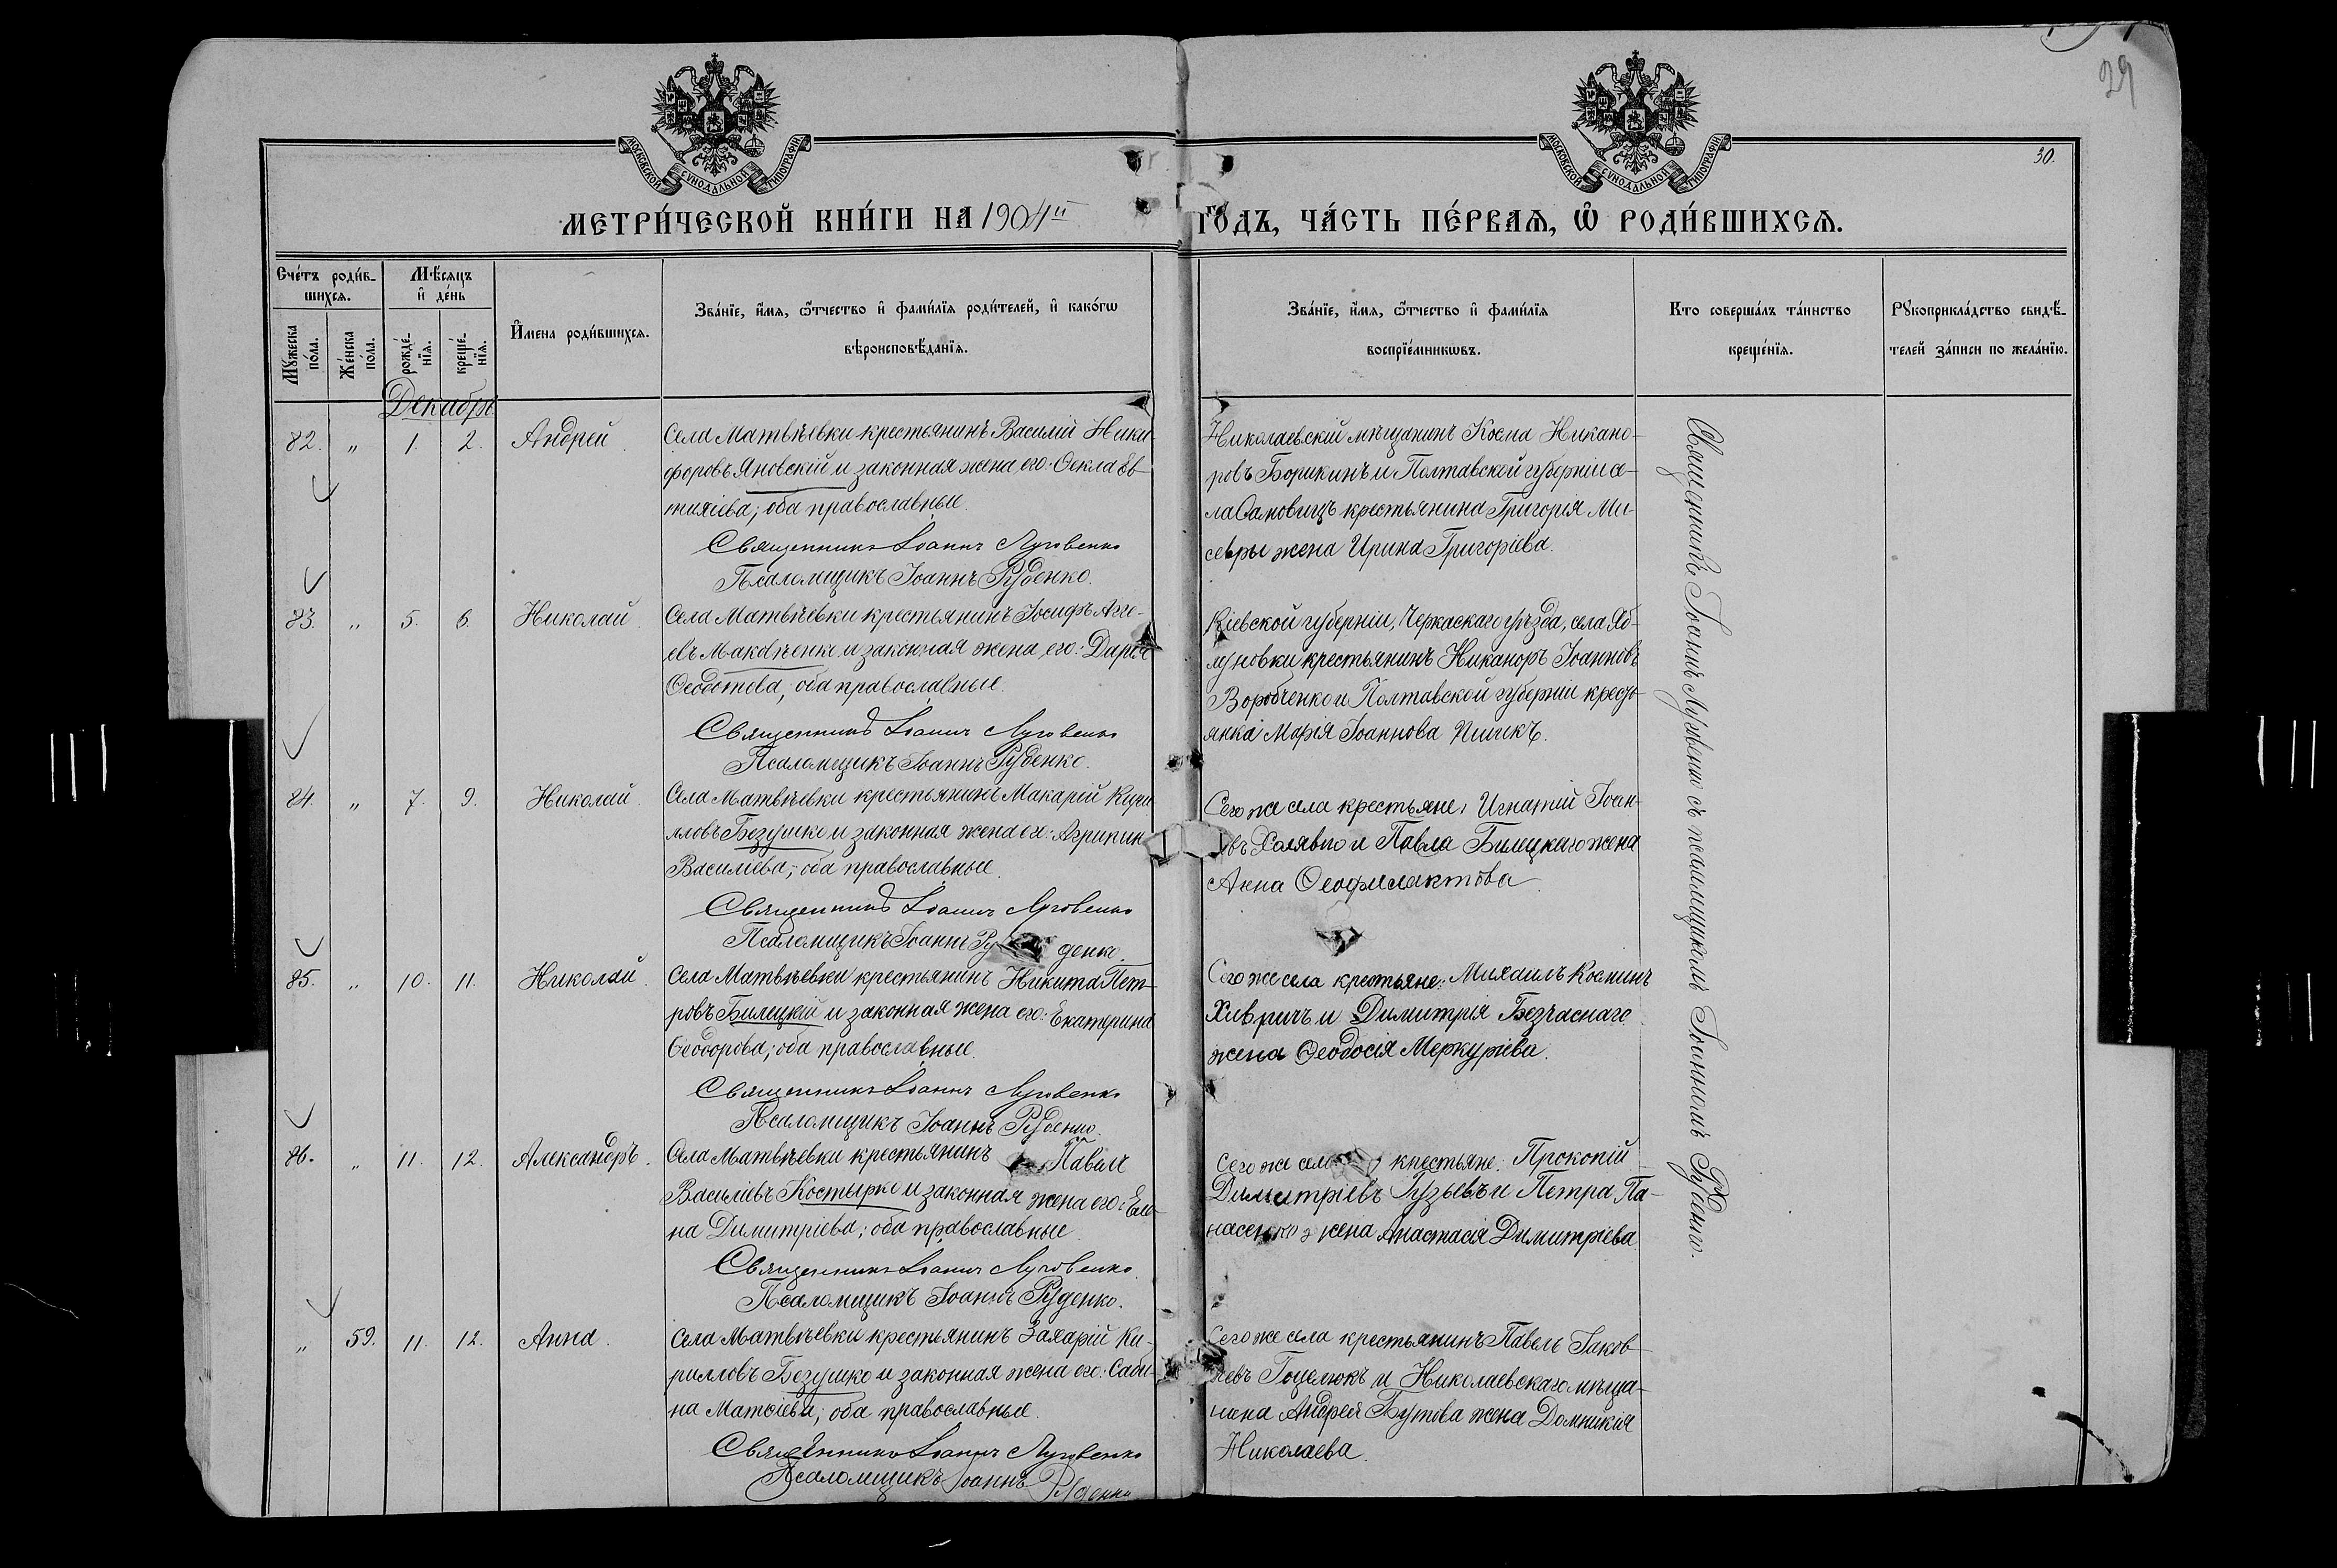 29
30.
МОСКОВСКОЙ СУНОДАЛЬНОЙ ТИПОГРАФІИ.
МОСКОВСКОЙ СУНОДАЛЬНОЙ ТИПОГРАФІИ.
МЕТРИ́ЧЕСКОЙ КНИ́ГИ НА 1904й ГОДЪ, ЧА́СТЬ ПЕ́РВАѦ, Ѡ҆ РОДИ́ВШИХСѦ.
Сче́тъ роди́в-
шихсѧ.
Мꙋжеска по́ла.
Же́нска по́ла.
Мѣ́сѧцъ
и҆ де́нь
рожде́-
нїѧ.
креще́-
нїѧ.
И҆мена роди́вшихсѧ.
Зва́нїе, и҆́мѧ, ѻ҆́тчество и҆ фами́лїѧ роди́телей, и҆ како́гѡ
вѣроисповѣ́данїѧ.
Зва́нїе, и҆́мѧ, ѻ҆́тчество и҆ фами́лїѧ
воспрїе́мникѡвъ.
Кто соверша́лъ та́инство
креще́нїѧ.
Рꙋкоприкла́дство свидѣ́-
телей за́писи по жела́нїю.
Декабрь
82. „ 1. 2. Андрей
Села Матвѣевки крестьянинъ Василій Ники-
форовъ Яновскій и законная жена его: Ѳекла Ев-
тихіева; оба православные.
Священникъ Іоаннъ Луговенко
Псаломщикъ Іоаннъ Руденко.
Николаевскій мѣщанинъ Косма Никано-
ровъ Борикинъ и Полтавской губерніи се-
ла Сановицъ крестьянина Григорія Ми-
севры жена Ирина Григоріева.
83. „ 5. 6. Николай.
Села Матвѣевки крестьянинъ Іосифъ Агге-
евъ Маковѣенко и законная жена его: Дарья
Ѳеодотова; оба православные.
Священникъ Іоаннъ Луговенко
Псаломщикъ Іоаннъ Руденко.
Кіевской губерніи, Черкаскаго уѣзда, села Яб-
луновки крестьянинъ Никаноръ Іоанновъ
Воробченко и Полтавской губерніи кресть-
янка Марія Іоаннова
84. „ 7. 9. Николай.
Села Матвѣевки крестьянинъ Макарій Кири-
лловъ Безушко и законная жена его: Агрипин
Василіева; оба православные.
Священникъ Іоаннъ Луговенко
Псаломщикъ Іоаннъ Ру денко.
Сего же села крестьяне: Игнатій Іоан-
овъ Холявко и Павла Билецкаго жена
Анна Ѳеофилактова.
85. „ 10. 11. Николай.
Села Матвѣевки крестьянинъ Никита Пет-
ровъ Билецкій и законная жена его: Екатерина
Ѳеодорова; оба православные.
Священникъ Іоаннъ Луговенко
Псаломщикъ Іоаннъ Руденко.
Сего же села крестьяне: Михаилъ Косминъ
Хивричъ и Димитрія Безчаснаго
жена Ѳеодосія Меркуріева.
86. „ 11. 12. Александръ.
Села Матвѣевки крестьянинъ Павелъ
Василіевъ Костырко и законная жена его: Еле-
на Димитріева; оба православные.
Священникъ Іоаннъ Луговенко
Псаломщикъ Іоаннъ Руденко.
Сего же села крестьяне: Прокопій
Димитріевъ Гузьевъ и Петра Па-
насенко жена Анастасія Димитріева.
„ 59. 11. 12. Анна.
Села Матвѣевки крестьянинъ Захарій Ки-
рилловъ Безушко и законная жена его: Саби-
на Матѳіева; оба православные.
Священникъ Іоаннъ Луговенко
Псаломщикъ Іоаннъ Руденко
Сего же села крестьянинъ Павелъ Іаков-
левъ Гоцелюкъ и Николаевскаго мѣща-
нина Андрея Бутова жена Домникія
Николаева.
Священникъ Іоаннъ Луговенко съ псаломщикомъ Іоанномъ Руденко.